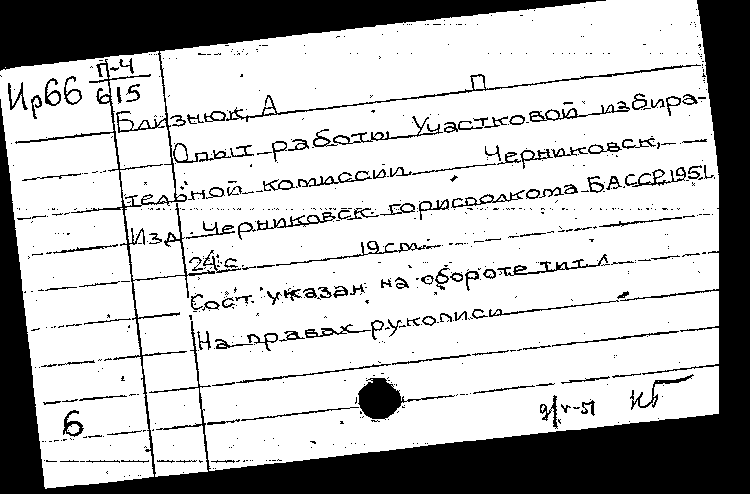 Ир66 П-4
615
Близнюк, А П
Опыт работы Участковой избира-
тельной комиссии Черниковск,
Изд. Черниковск. горисполкома БАССР, 1951.
24 с. 19 см.
Сост. указан на обороте тит. л.
На правах рукописи
6
9/V-51